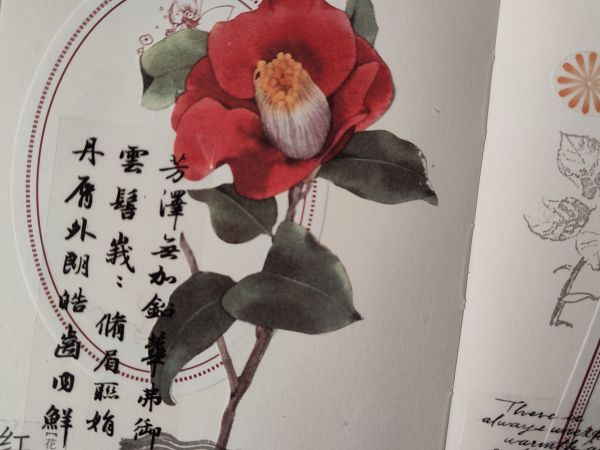 芳澤無加鉛華弗御
雲髻峩々脩眉聯娟
丹脣外朗皓齒内鮮
红
【花
There is
always
warmth